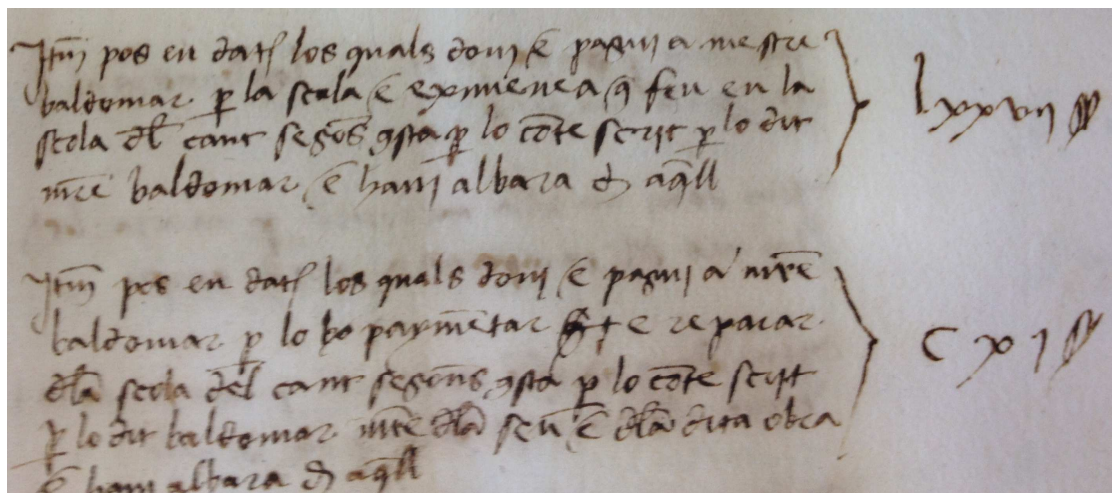 Itm̄ pos en dats los quals doni e pagui a mestre
baldomar p̱ la scala e exmenea q̄ feu en la
scola dl̄ cant segōs ꝯsta p̱ lo cōte scrit p̱ lo dit
mr̄e baldomar e hani albara d aq̄ll
lxxvii ss
Itm̄ pos en dats los quals doni e pagui a mr̄e
baldomar p̱ lo paymētar e reparar
dl̄a scola del cant segōns ꝯsta p̱ lo cōte scrit
p̱ lo dit baldomar mr̄e dl̄a seu e dl̄a dita obra
e hani albara d aq̄ll
cxi ss